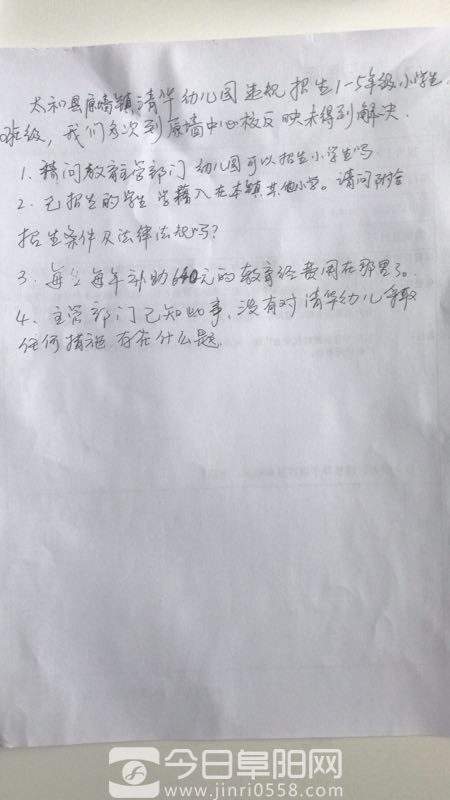 太和县原墙镇清华幼儿园违规招生1-5年级小学生
班级，我们多次到原墙中心校反映未得到解决.
1. 请问教育主管部门幼儿园可以招生小学生吗
2. 已招生的学生学籍入在本镇其他小学。请问附合
招生条件及法律法规吗?
3. 每生每年补助640元的教育经费用在那里了。
4. 主管部门已知此事，没有对清华幼儿争取
任何措施存在什么题.
今日阜阳网
www.jinri0558.com